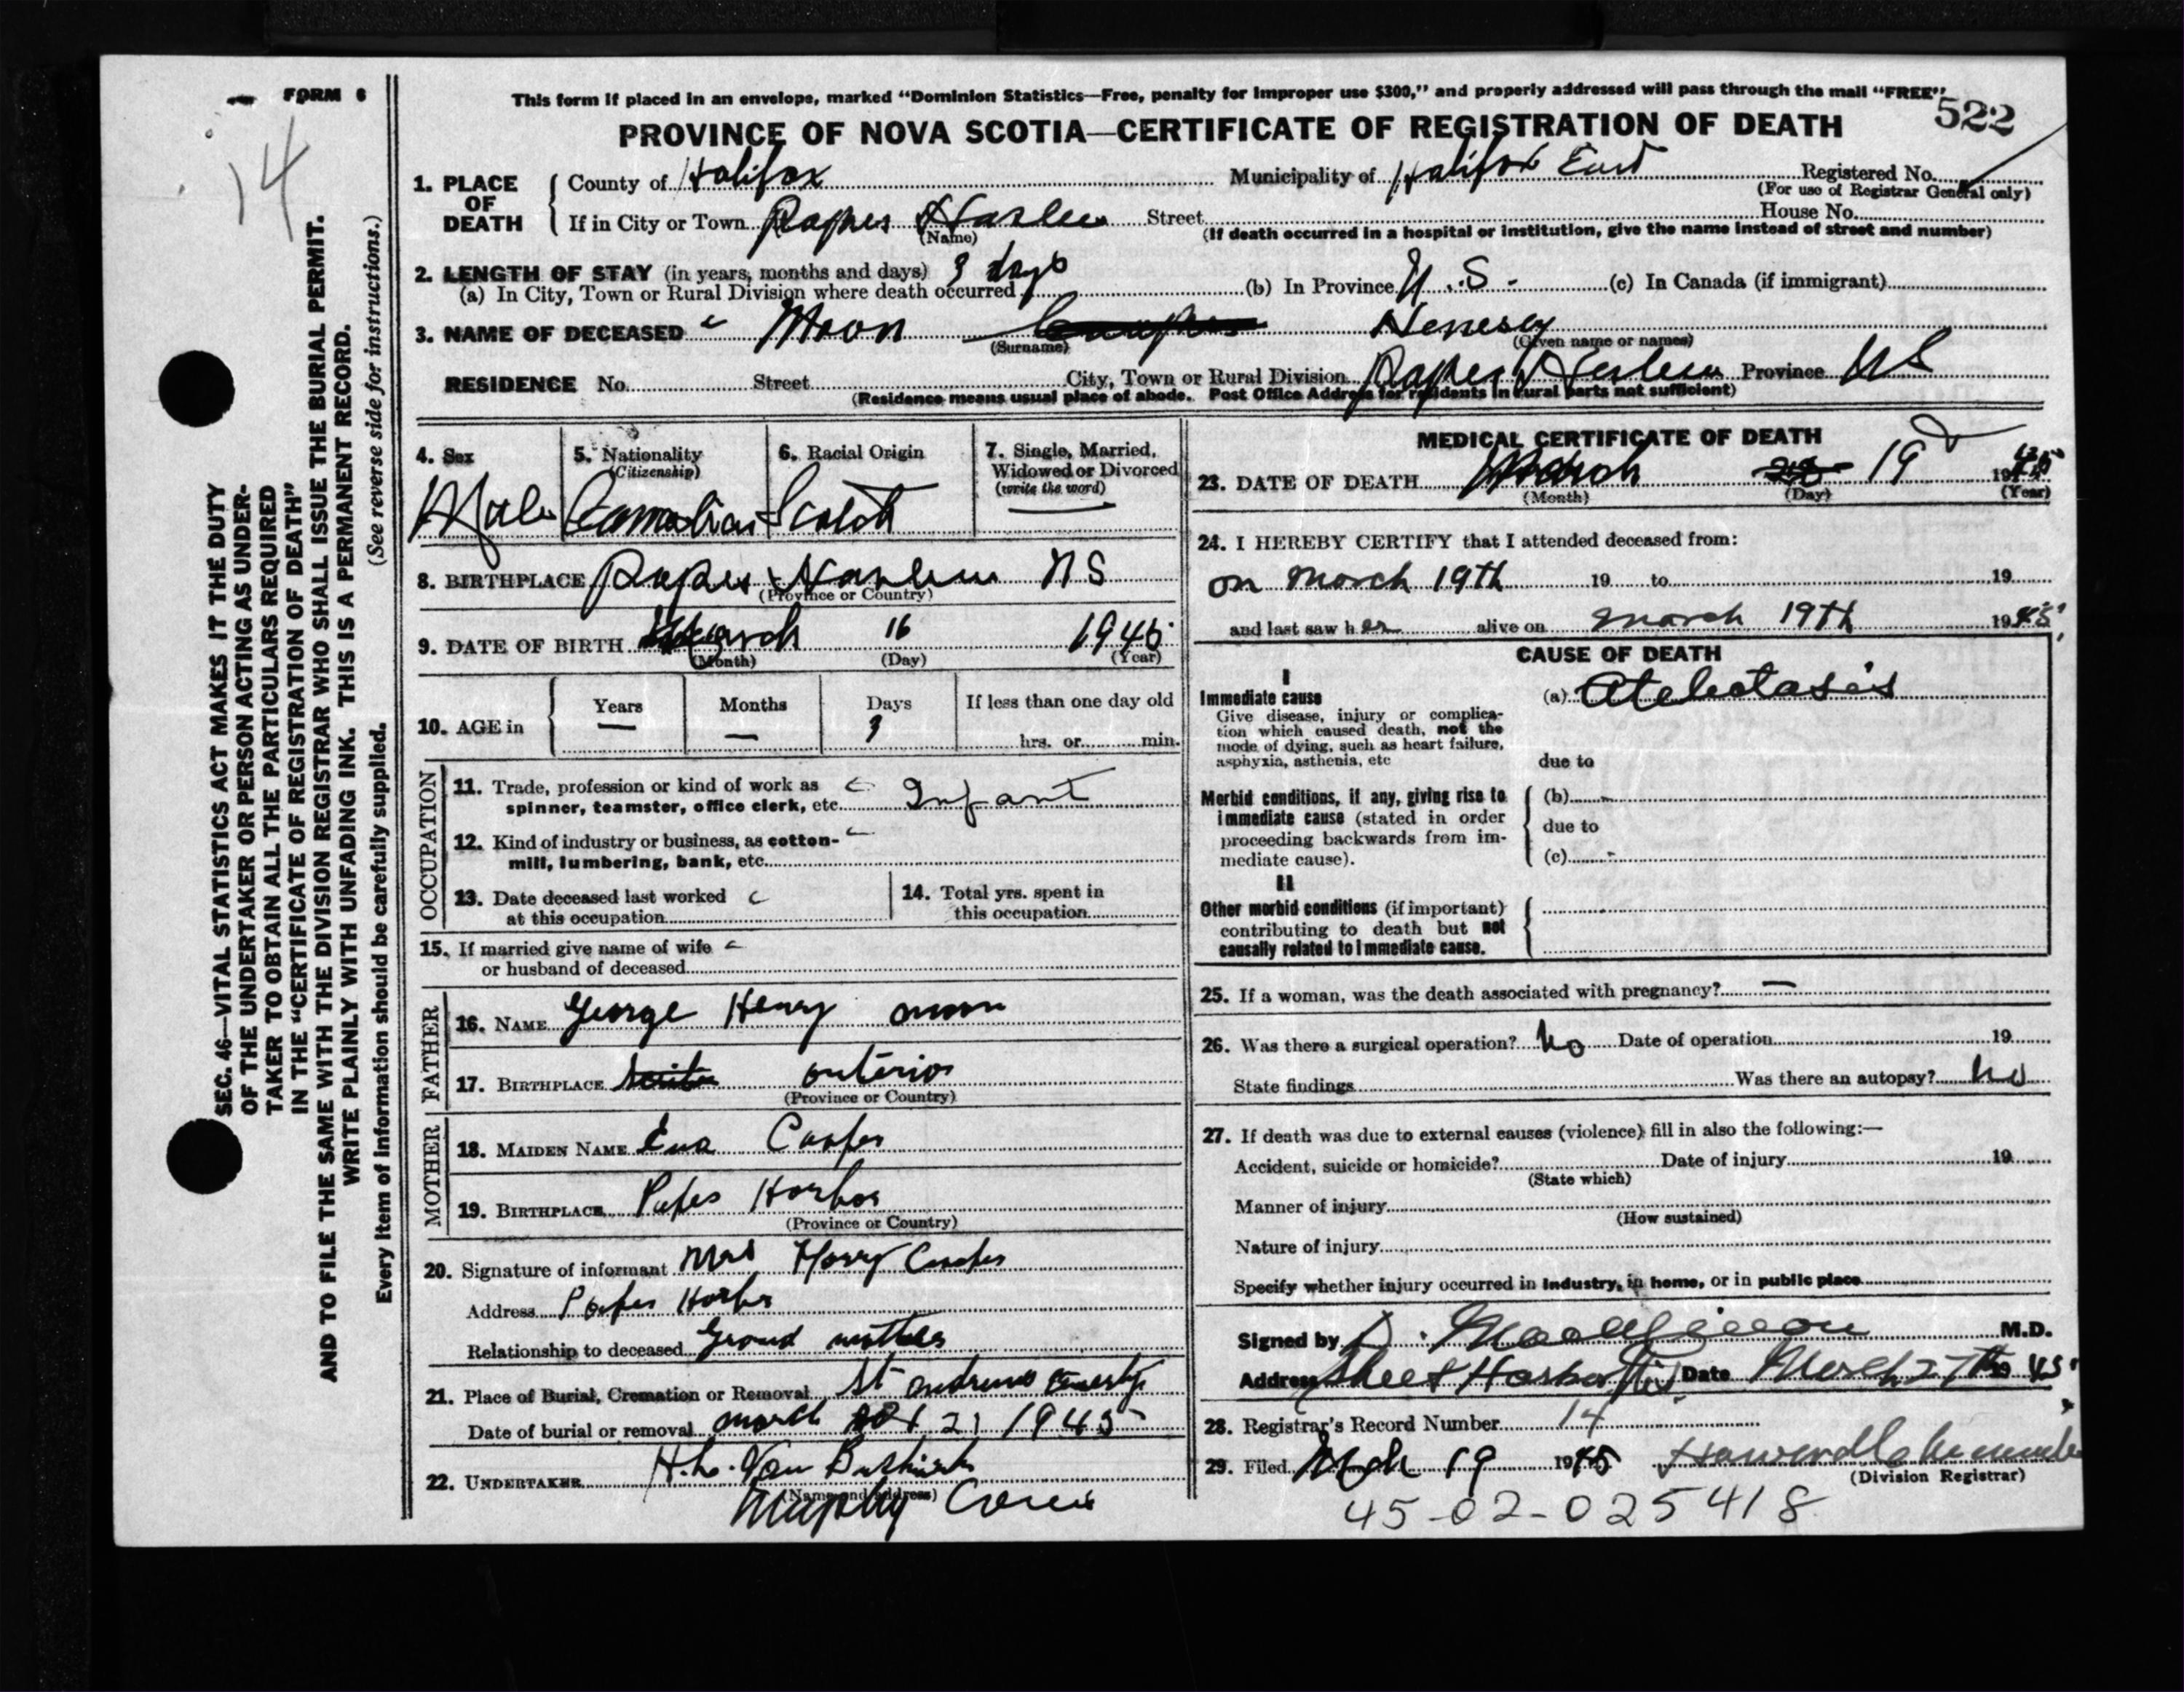 FORM 6
14
SEC. 46—VITAL STATISTICS ACT MAKES IT THE DUTY
OF THE UNDERTAKER OR PERSON ACTING AS UNDER-
TAKER TO OBTAIN ALL THE PARTICULARS REQUIRED
IN THE "CERTIFICATE OF REGISTRATION OF DEATH"
AND TO FILE THE SAME WITH THE DIVISION REGISTRAR WHO SHALL ISSUE THE BURIAL PERMIT.
WRITE PLAINLY WITH UNFADING INK. THIS IS A PERMANENT RECORD.
Every item of information should be carefully supplied. (See reverse side for instructions.)
This form if placed in an envelope, marked "Dominion Statistics—Free, penalty for improper use $300," and properly addressed will pass through the mail "FREE"
522
PROVINCE OF NOVA SCOTIA—CERTIFICATE OF REGISTRATION OF DEATH
1. PLACE OF DEATH County of Halifax Municipality of Halifax East Registered No.
(For use of Registrar General only)
If in City or Town Street House No.
(Name) (If death occurred in a hospital or institution, give the name instead of street and number)
2. LENGTH OF STAY (in years, months and days) 3 days
(a) In City, Town or Rural Division where death occurred (b) In Province N.S. (c) In Canada (if immigrant)
3. NAME OF DECEASED Moon
(Surname) (Given name or names)
RESIDENCE No. Street City, Town or Rural Division Province NS
(Residence means usual place of abode. Post Office Address for residents in rural parts not sufficient)
4. Sex 5. Nationality (Citizenship) 6. Racial Origin 7. Single, Married, Widowed or Divorced (write the word)
Male Canadian Scotch —
8. BIRTHPLACE NS
(Province or Country)
9. DATE OF BIRTH March 16 1945
(Month) (Day) (Year)
10. AGE in Years Months Days If less than one day old
— — 3 hrs. or min.
OCCUPATION
11. Trade, profession or kind of work as
spinner, teamster, office clerk, etc. Infant
12. Kind of industry or business, as cotton-
mill, lumbering, bank, etc.
13. Date deceased last worked
at this occupation
14. Total yrs. spent in
this occupation
15. If married give name of wife
or husband of deceased
FATHER
16. NAME George Henry Moon
17. BIRTHPLACE Onterio
(Province or Country)
MOTHER
18. MAIDEN NAME Eva
19. BIRTHPLACE Popes Harbor
(Province or Country)
20. Signature of informant Mrs Harry
Address Popes Harbor
Relationship to deceased Grand mother
21. Place of Burial, Cremation or Removal St Andrews
Date of burial or removal March 21 1945
22. UNDERTAKER H.L. Van Buskirk
(Name and address)
Murphy Cove
MEDICAL CERTIFICATE OF DEATH
23. DATE OF DEATH March 19 1945
(Month) (Day) (Year)
24. I HEREBY CERTIFY that I attended deceased from:
on March 19th 19 to 19
and last saw her alive on March 19th 1945
CAUSE OF DEATH
I
Immediate cause (a) Atelectasis
Give disease, injury or complica-
tion which caused death, not the
mode of dying, such as heart failure,
asphyxia, asthenia, etc due to
Morbid conditions, if any, giving rise to (b)
immediate cause (stated in order due to
proceeding backwards from im-
mediate cause). (c)
II
Other morbid conditions (if important)
contributing to death but not
causally related to immediate cause.
25. If a woman, was the death associated with pregnancy? —
26. Was there a surgical operation? No Date of operation 19
State findings Was there an autopsy? No
27. If death was due to external causes (violence) fill in also the following:—
Accident, suicide or homicide? Date of injury 19
(State which)
Manner of injury
(How sustained)
Nature of injury
Specify whether injury occurred in industry, in home, or in public place
Signed by M.D.
Address Sheet Harbor Date March 27th 1945
28. Registrar's Record Number 14
29. Filed Mch 19 1945
(Division Registrar)
45-02-025418